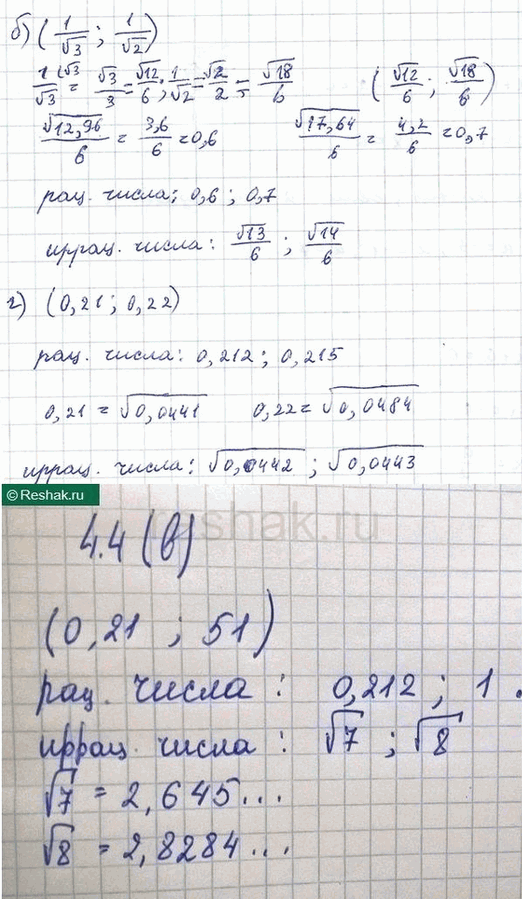 б) (1/√3 ; 1/√2)
1/√3 (√3 = √3/3 = √12/6 ; 1/√2 = √2/2 = √18/6 (√12/6 ; √18/6)
√12,96/6 = 3,6/6 = 0,6 √17,64/6 = 4,2/6 = 0,7
рац. числа: 0,6 ; 0,7
иррац. числа: √13/6 ; √14/6
г) (0,21 ; 0,22)
рац. числа: 0,212 ; 0,215
0,21 = √0,0441 0,22 = √0,0484
иррац. числа: √0,0442 ; √0,0443
© Reshak.ru
reshak.ru
4.4 (в)
(0,21 ; 51)
рац. числа : 0,212 ; 1.
иррац. числа : √7 ; √8
√7 = 2,645...
√8 = 2,8284...